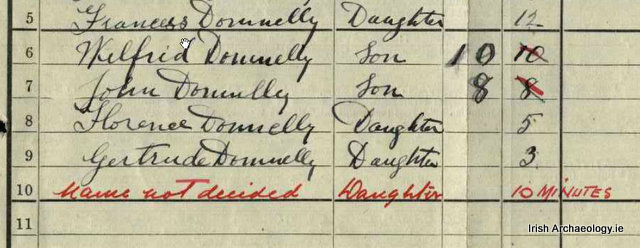 5 Frances Donnelly Daughter 12
6 Wilfrid Donnelly Son 10 10
7 John Donnelly Son 8 8
8 Florence Donnelly Daughter 5
9 Gertrude Donnelly Daughter 3
10 Name not decided Daughter 10 MINUTES
11
Irish Archaeology.ie